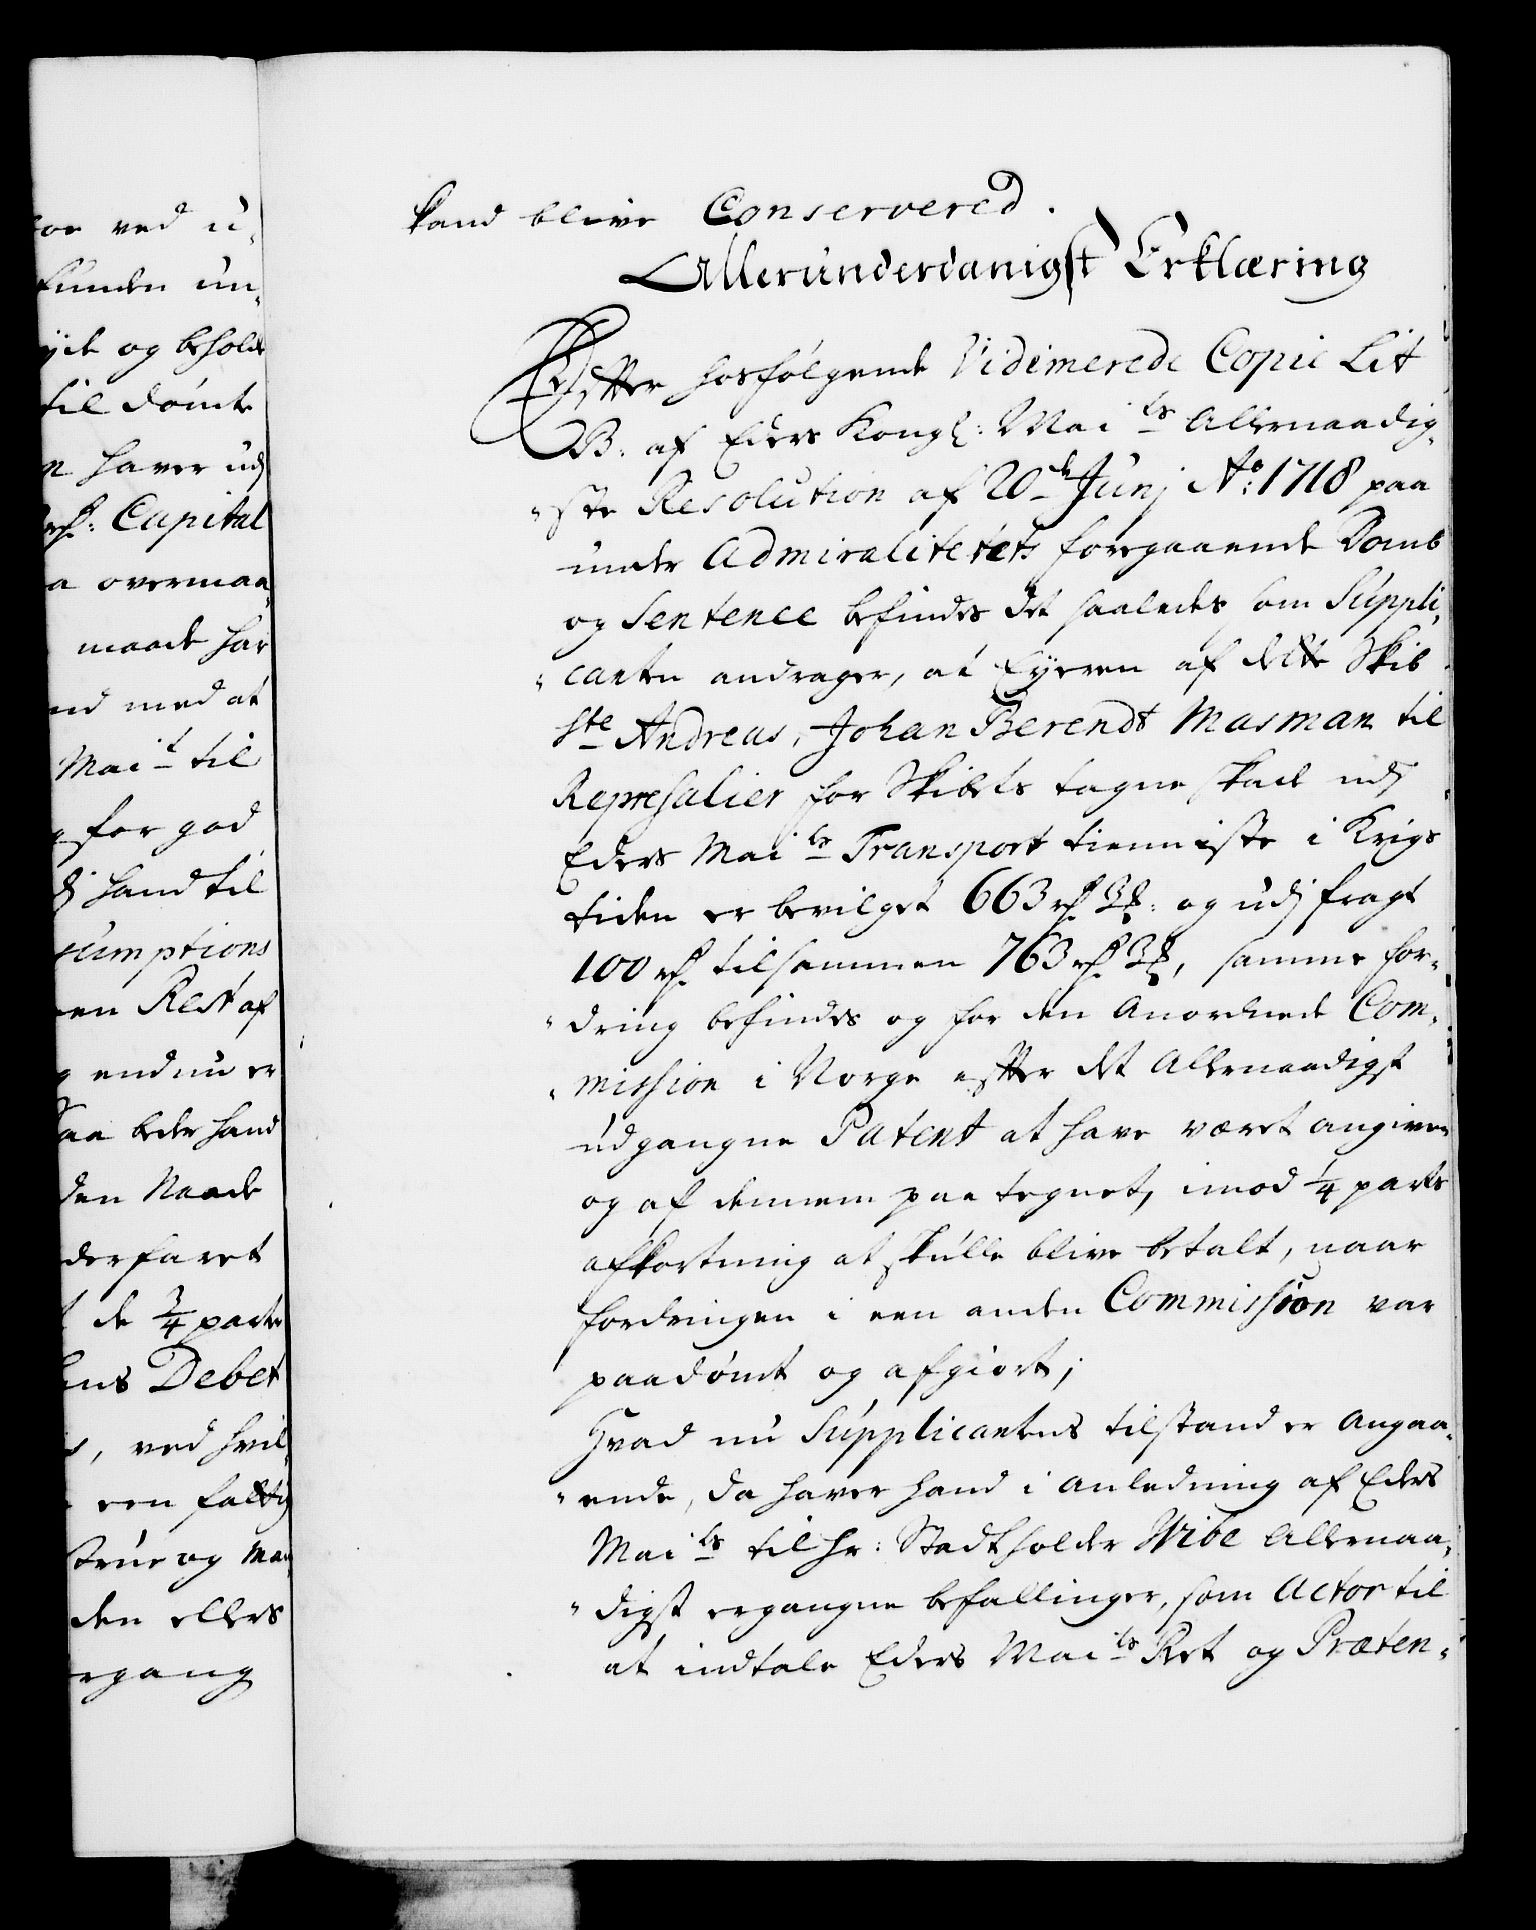 for ved u-
funden un-
nyde og beholde
til dömte
n haver udj
rd: Capital
a overmaa-
maade har
nd med at
Mai:t til
g for god
dj hand til
sumptions
en Rest af
g endnu er
saa beder hand
den Naade
derfaret
t de 3/4 parte
ens Debet
s, ved hvil-
een fattig
Strue og Man
den ellers
rgang
kand blive Conserverd.
Allerunderdanigst Erklæring
Efter hosfølgende Vidimerede Copie Lit
B: af Eders Kongl: Maits Allernaadig-
ste Resolution af 20de Junj Ao: 1718 paa
under Admiralitetets foregaaende Domb
og Sentence befindes det saaledes som Suppli-
canten andrager, at Eyeren af dette Skib
Ste Andreas, Johan Berendt Masman til
Represalier for Skibets tagne skade udj
Eders Maits Transport tienniste i Krigs
tiden er bevilget 663 rd: og udj fragt
100 rd tilsammen 763 rd, samme for-
dring befindes og for den Anordnede Com-
mission i Norge efter det Allernaadigst
udgangne Patent at have været angiven
og af dennem paa tegnet, imod 1/4 parts
afkortning at skulle blive betalt, naar
fordringen i een anden Commission var
paadömt og afgiort;
Hvad nu Supplicantens tilstand er Angaa-
ende, da haver hand i anledning af Eders
Maits til Hr: Stadtholder Wibe Allernaa-
digst ergangne befallinger, som Actor til
at indtale Eders Maits Ret og Præten-